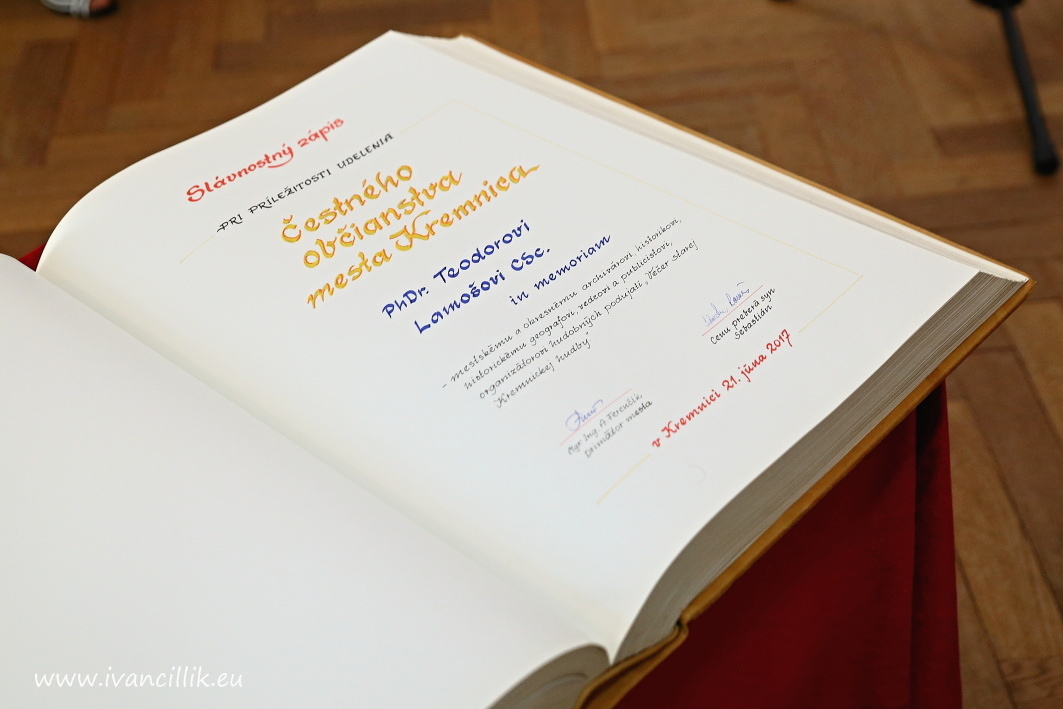 Slávnostný zápis
PRI PRÍLEŽITOSTI UDELENIA
Čestného
občianstva
mesta Kremnica
PhDr. Teodorovi
Lamošovi CSc.
in memoriam
- mestskému a okresnému archivárovi, historikovi,
historickému geografovi, redaktorovi a publicistovi,
organizátorovi hudobných podujatí „Večer starej
Kremnickej hudby"
Cenu preberá syn
Sebastián
Mgr. Ing. A. Ferenčík,
primátor mesta
v Kremnici 21. júna 2017
www.ivancillik.eu